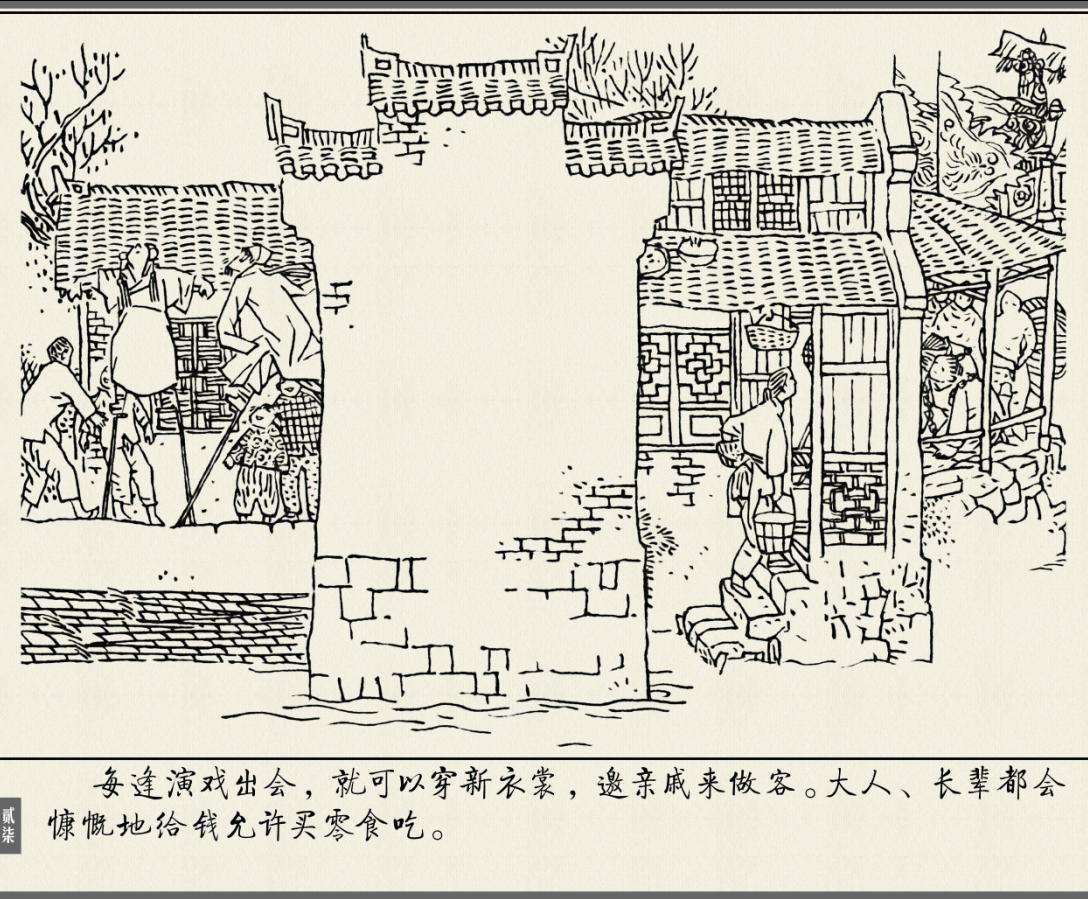 每逢演戏出会，就可以穿新衣裳，邀亲戚来做客。大人、长辈都会
慷慨地给钱允许买零食吃。
贰柒